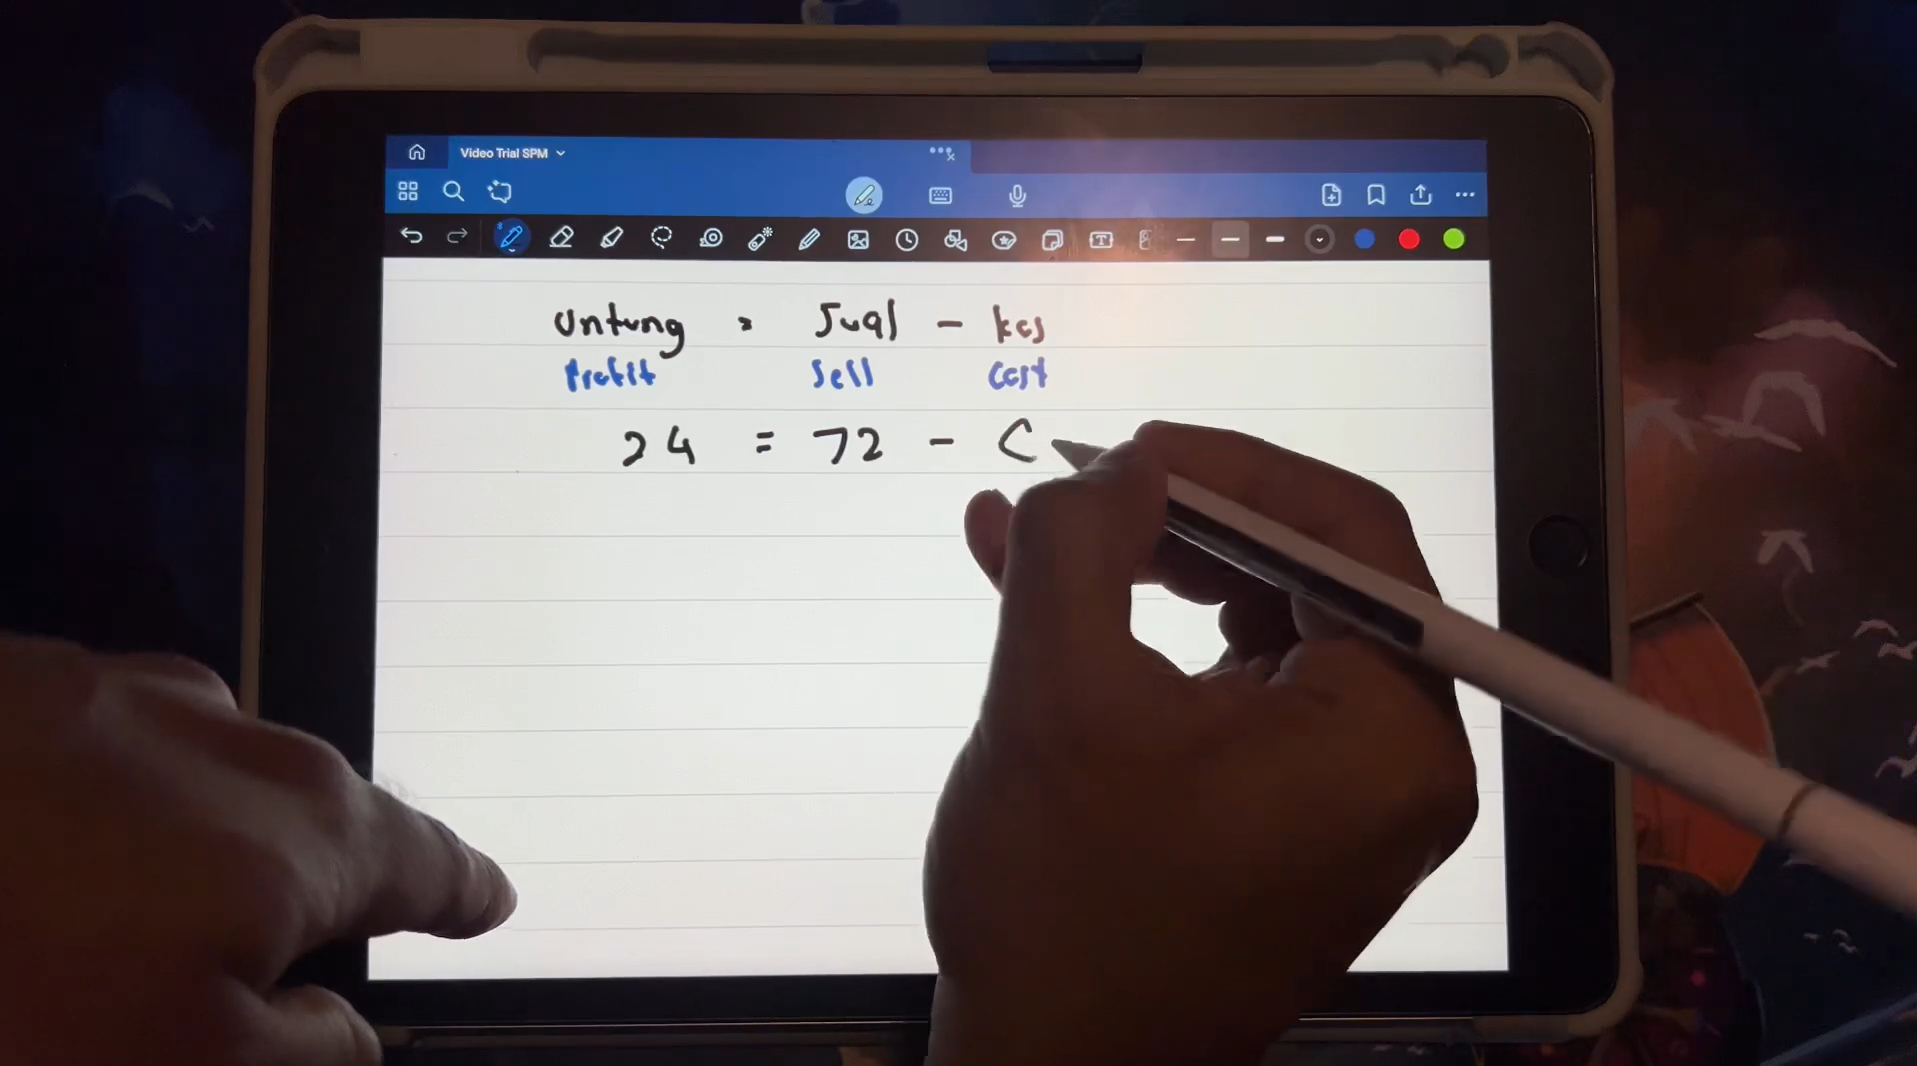 Video Trial SPM
Untung = Jual - kos
Profit Sell Cost
24 = 72 - C